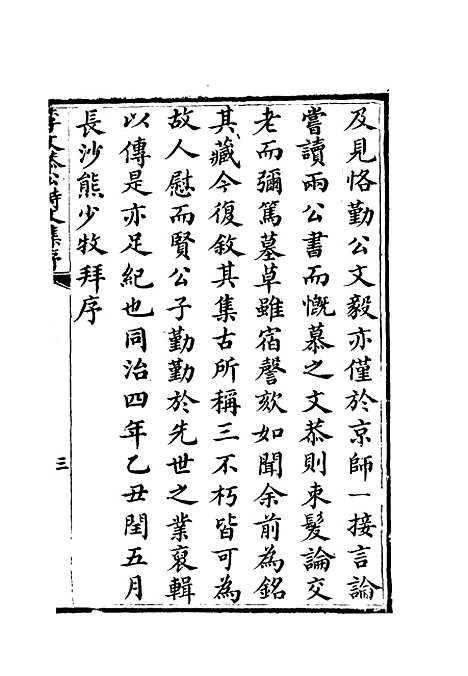 及見恪勤公文毅亦僅於京師一接言論
嘗讀兩公書而慨慕之文恭則束髮論交
老而彌篤墓草雖宿謦欬如聞余前為銘
其藏今復敘其集古所稱三不朽皆可為
故人慰而賢公子勤勤於先世之業裒輯
以傳是亦足紀也同治四年乙丑閏五月
長沙熊少牧拜序
文恭公詩文集序
三